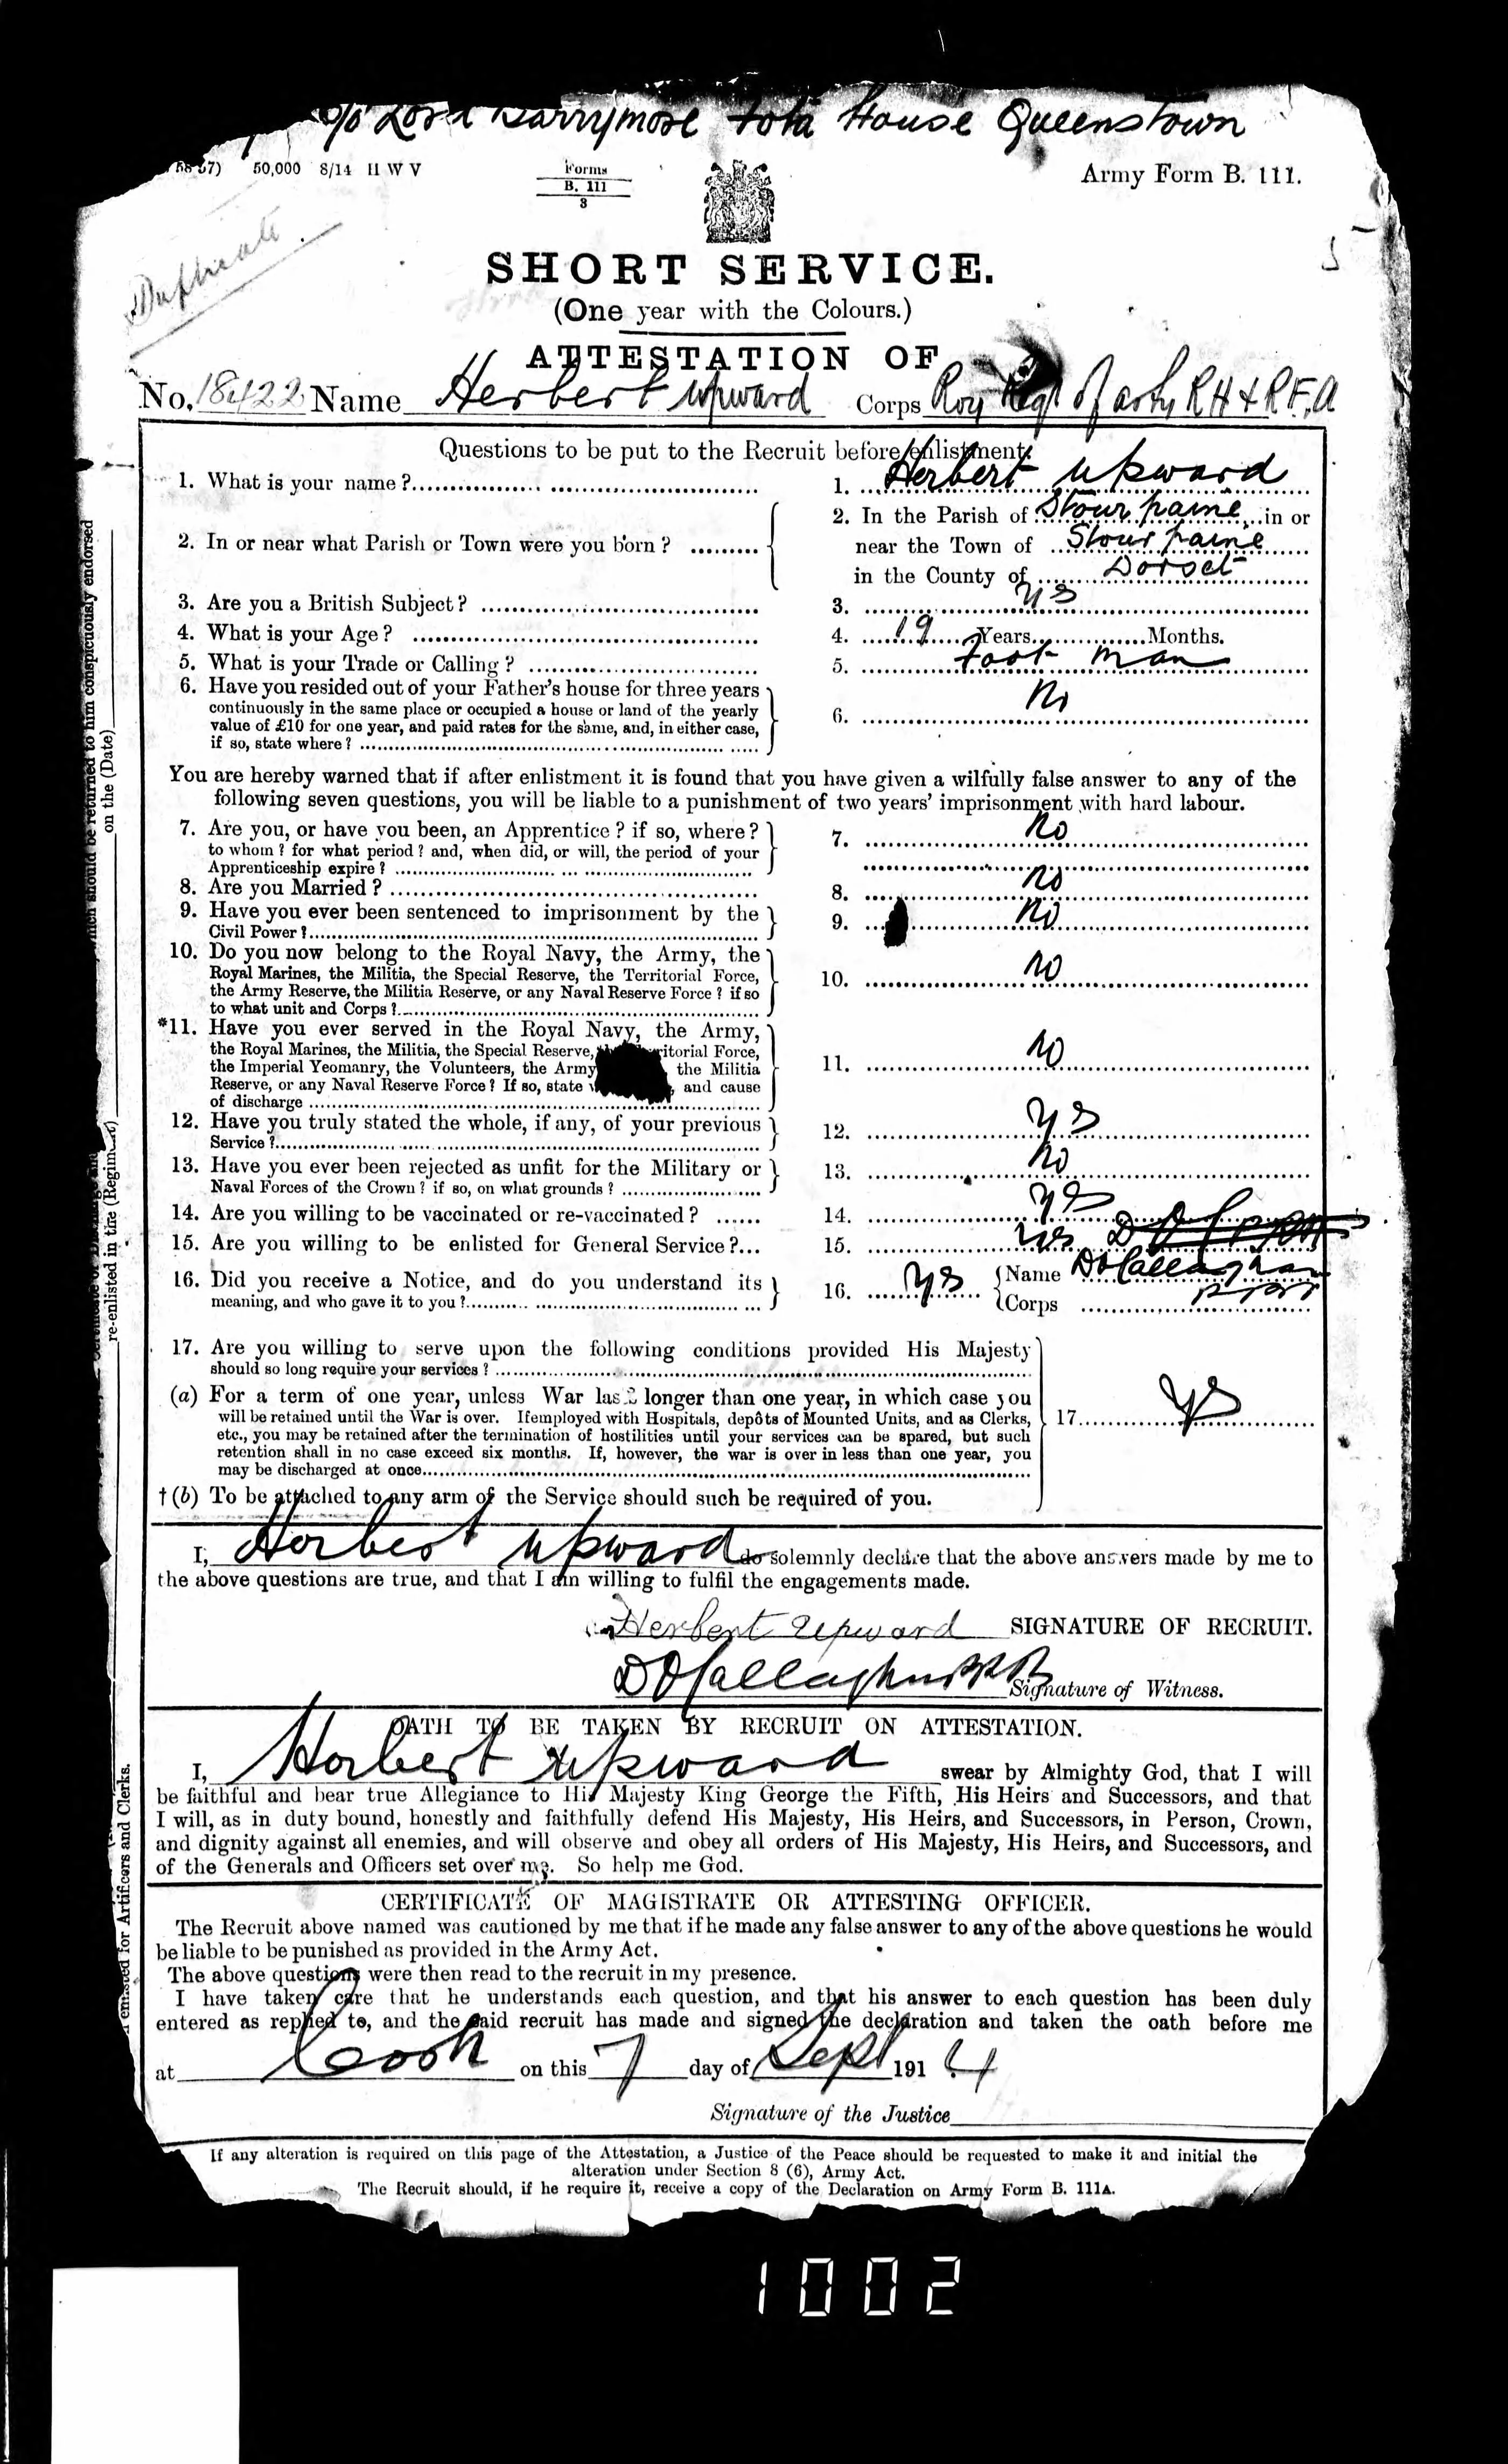 c/o Lord Barrymore Fota House Queenstown
50,000 8/14 H W V
Forms
B. 111
3
Army Form B. 111.
Duplicate
SHORT SERVICE.
(One year with the Colours.)
ATTESTATION OF
No. 18422 Name Herbert Upward Corps Roy Regt of arty RH & RF.A
Questions to be put to the Recruit before enlistment.
1. What is your name? 1. Herbert Upward
2. In or near what Parish or Town were you born? 2. In the Parish of Stourpaine in or
near the Town of Stourpaine
in the County of Dorset
3. Are you a British Subject? 3. Yes
4. What is your Age? 4. 19 Years Months.
5. What is your Trade or Calling? 5. Foot man
6. Have you resided out of your Father's house for three years
continuously in the same place or occupied a house or land of the yearly
value of £10 for one year, and paid rates for the same, and, in either case,
if so, state where? 6. No
You are hereby warned that if after enlistment it is found that you have given a wilfully false answer to any of the
following seven questions, you will be liable to a punishment of two years' imprisonment with hard labour.
7. Are you, or have you been, an Apprentice? if so, where?
to whom? for what period? and, when did, or will, the period of your
Apprenticeship expire? 7. No
8. Are you Married? 8. No
9. Have you ever been sentenced to imprisonment by the
Civil Power? 9. No
10. Do you now belong to the Royal Navy, the Army, the
Royal Marines, the Militia, the Special Reserve, the Territorial Force,
the Army Reserve, the Militia Reserve, or any Naval Reserve Force? if so
to what unit and Corps? 10. No
*11. Have you ever served in the Royal Navy, the Army,
the Royal Marines, the Militia, the Special Reserve, itorial Force,
the Imperial Yeomanry, the Volunteers, the Army the Militia
Reserve, or any Naval Reserve Force? If so, state , and cause
of discharge 11. No
12. Have you truly stated the whole, if any, of your previous
Service? 12. Yes
13. Have you ever been rejected as unfit for the Military or
Naval Forces of the Crown? if so, on what grounds? 13. No
14. Are you willing to be vaccinated or re-vaccinated? 14. Yes
15. Are you willing to be enlisted for General Service? 15. Yes
16. Did you receive a Notice, and do you understand its
meaning, and who gave it to you? 16. Yes Name D O'Callaghan
Corps
17. Are you willing to serve upon the following conditions provided His Majesty
should so long require your services?
(a) For a term of one year, unless War last longer than one year, in which case you
will be retained until the War is over. If employed with Hospitals, depôts of Mounted Units, and as Clerks,
etc., you may be retained after the termination of hostilities until your services can be spared, but such
retention shall in no case exceed six months. If, however, the war is over in less than one year, you
may be discharged at once. 17. Yes
† (b) To be attached to any arm of the Service should such be required of you.
I, Herbert Upward do solemnly declare that the above answers made by me to
the above questions are true, and that I am willing to fulfil the engagements made.
Herbert Upward SIGNATURE OF RECRUIT.
D O'Callaghan Signature of Witness.
OATH TO BE TAKEN BY RECRUIT ON ATTESTATION.
I, Herbert Upward swear by Almighty God, that I will
be faithful and bear true Allegiance to His Majesty King George the Fifth, His Heirs and Successors, and that
I will, as in duty bound, honestly and faithfully defend His Majesty, His Heirs, and Successors, in Person, Crown,
and dignity against all enemies, and will observe and obey all orders of His Majesty, His Heirs, and Successors, and
of the Generals and Officers set over me. So help me God.
CERTIFICATE OF MAGISTRATE OR ATTESTING OFFICER.
The Recruit above named was cautioned by me that if he made any false answer to any of the above questions he would
be liable to be punished as provided in the Army Act.
The above questions were then read to the recruit in my presence.
I have taken care that he understands each question, and that his answer to each question has been duly
entered as replied to, and the said recruit has made and signed the declaration and taken the oath before me
at Cork on this 7 day of Sept 1914
Signature of the Justice
If any alteration is required on this page of the Attestation, a Justice of the Peace should be requested to make it and initial the
alteration under Section 8 (6), Army Act.
The Recruit should, if he require it, receive a copy of the Declaration on Army Form B. 111A.
should be returned to him conspicuously endorsed
re-enlisted in the (Regiment) on the (Date)
for Artificers and Clerks.
1002